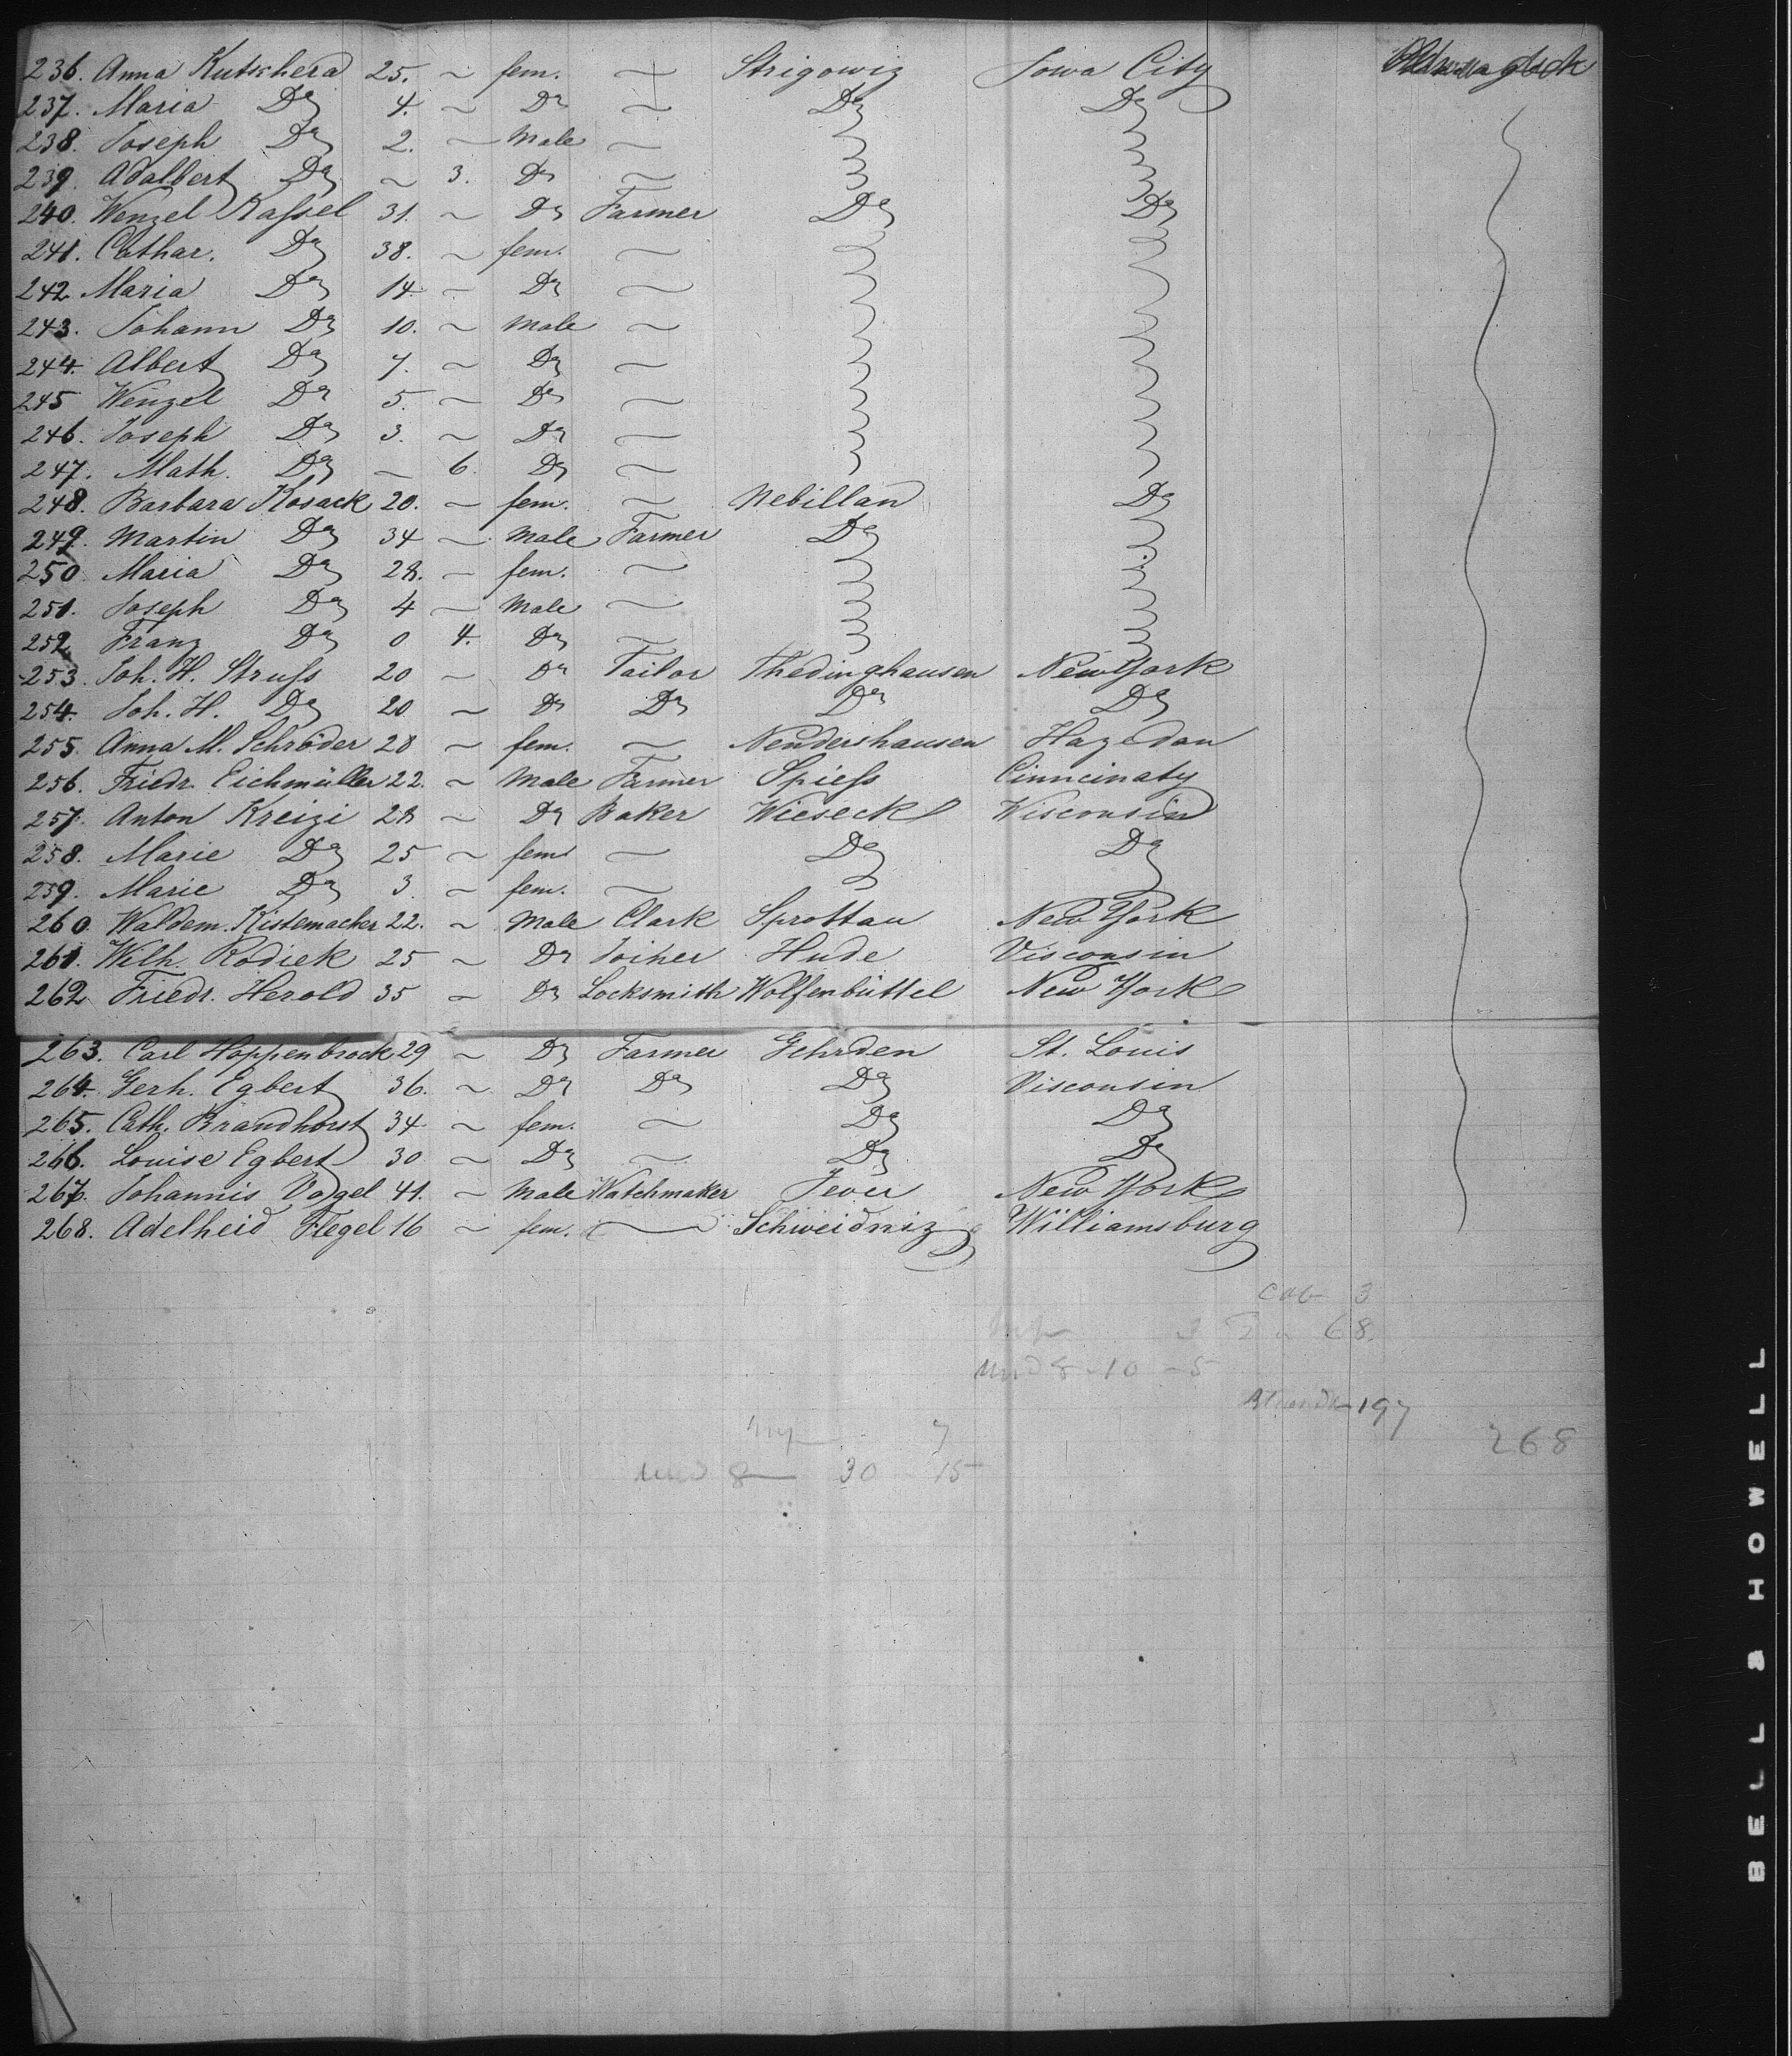 236. Anna Kutschera 25. ~ fem. ~ Strigowiz Iowa City
237. Maria Do 4. ~ Do ~ Do Do
238. Joseph Do 2. ~ Male ~
239. Adalbert Do ~ 3. Do ~
240. Wenzel Kassel 31. ~ Do Farmer Do Do
241. Cathar. Do 38. ~ fem. ~
242 Maria Do 14 ~ Do ~
243. Johann Do 10. ~ Male ~
244. Albert Do 7. ~ Do ~
245 Wenzel Do 5. ~ Do ~
246. Joseph Do 3. ~ Do ~
247. Math. Do ~ 6. Do ~
248. Barbara Kosack 20. ~ fem. ~ Nebillan Do
249. Martin Do 34 ~ Male Farmer Do
250 Maria Do 28. ~ fem. ~
251. Joseph Do 4 ~ Male ~
252. Franz Do 0 4. Do ~
253. Joh. H. Struss 20 ~ Do Tailor Thedinghausen New York
254. Joh. H. Do 20 ~ Do Do Do Do
255. Anna M. Schröder 28 ~ fem. ~ Nendershausen Hazedon
256. Friedr. Eichmüller 22. ~ Male Farmer Spiess Cinncinaty
257. Anton Kreizi 28 ~ Do Baker Wieseck Wisconsin
258. Marie Do 25 ~ fem ~ Do Do
259. Marie Do 3 ~ fem. ~
260 Waldem. Kistemacher 22. ~ Male Clark Sprottau New York
261. Wilh. Rodiek 25 ~ Do Joiner Hude Visconsin
262 Friedr. Herold 35 ~ Do Locksmith Wolfenbüttel New York
263. Carl Hoppenbrock 29 ~ Do Farmer Gehrden St. Louis
264. Gerh. Egbert 36. ~ Do Do Do Visconsin
265. Cath. Brandhorst 34 ~ fem. ~ Do Do
266. Louise Egbert 30 ~ Do ~ Do Do
267. Johannis Vogel 41. ~ Male Watchmaker Jever New York
268. Adelheid Flegel 16 ~ fem. ~ Schweidniz Williamsburg
Cab 3
68.
8 10 - 5
197
268
7
8 30 15
BELL & HOWELL